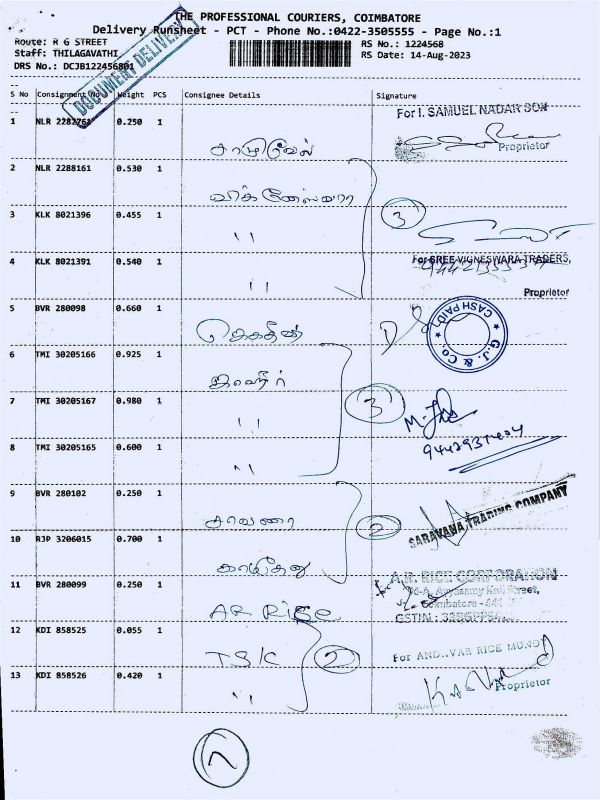 THE PROFESSIONAL COURIERS, COIMBATORE
Delivery Runsheet - PCT - Phone No.:0422-3505555 - Page No.:1
Route: R G STREET
RS No.: 1224568
Staff: THILAGAVATHI
RS Date: 14-Aug-2023
DRS No.: DCJB122456801
DOCUMENT DELIVERY
S No Consignment No Weight PCS Consignee Details Signature
1 NLR 0.250 1 For I. SAMUEL NADAR SON
Proprietor
2 NLR 2288161 0.530 1 விக்னேஸ்வரா
3 KLK 8021396 0.455 1 " 3
4 KLK 8021391 0.540 1 " For SREE VIGNESWARA TRADERS,
Proprietor
5 BVR 280098 0.660 1
G.J. & Co. CASH PAID
6 TMI 30205166 0.925 1
7 TMI 30205167 0.980 1 " 3
8 TMI 30205165 0.600 1 "
9 BVR 280102 0.250 1 சரவணா 2 SARAVANA TRADING COMPANY
10 RJP 3206015 0.700 1
11 BVR 280099 0.250 1 AR Rice A.R. RICE CORPORATION
Street,
Coimbatore
GSTIN :
12 KDI 858525 0.055 1 TSK 2 For ANDAVAR RICE MUNDY
13 KDI 858526 0.420 1 " Proprietor
7